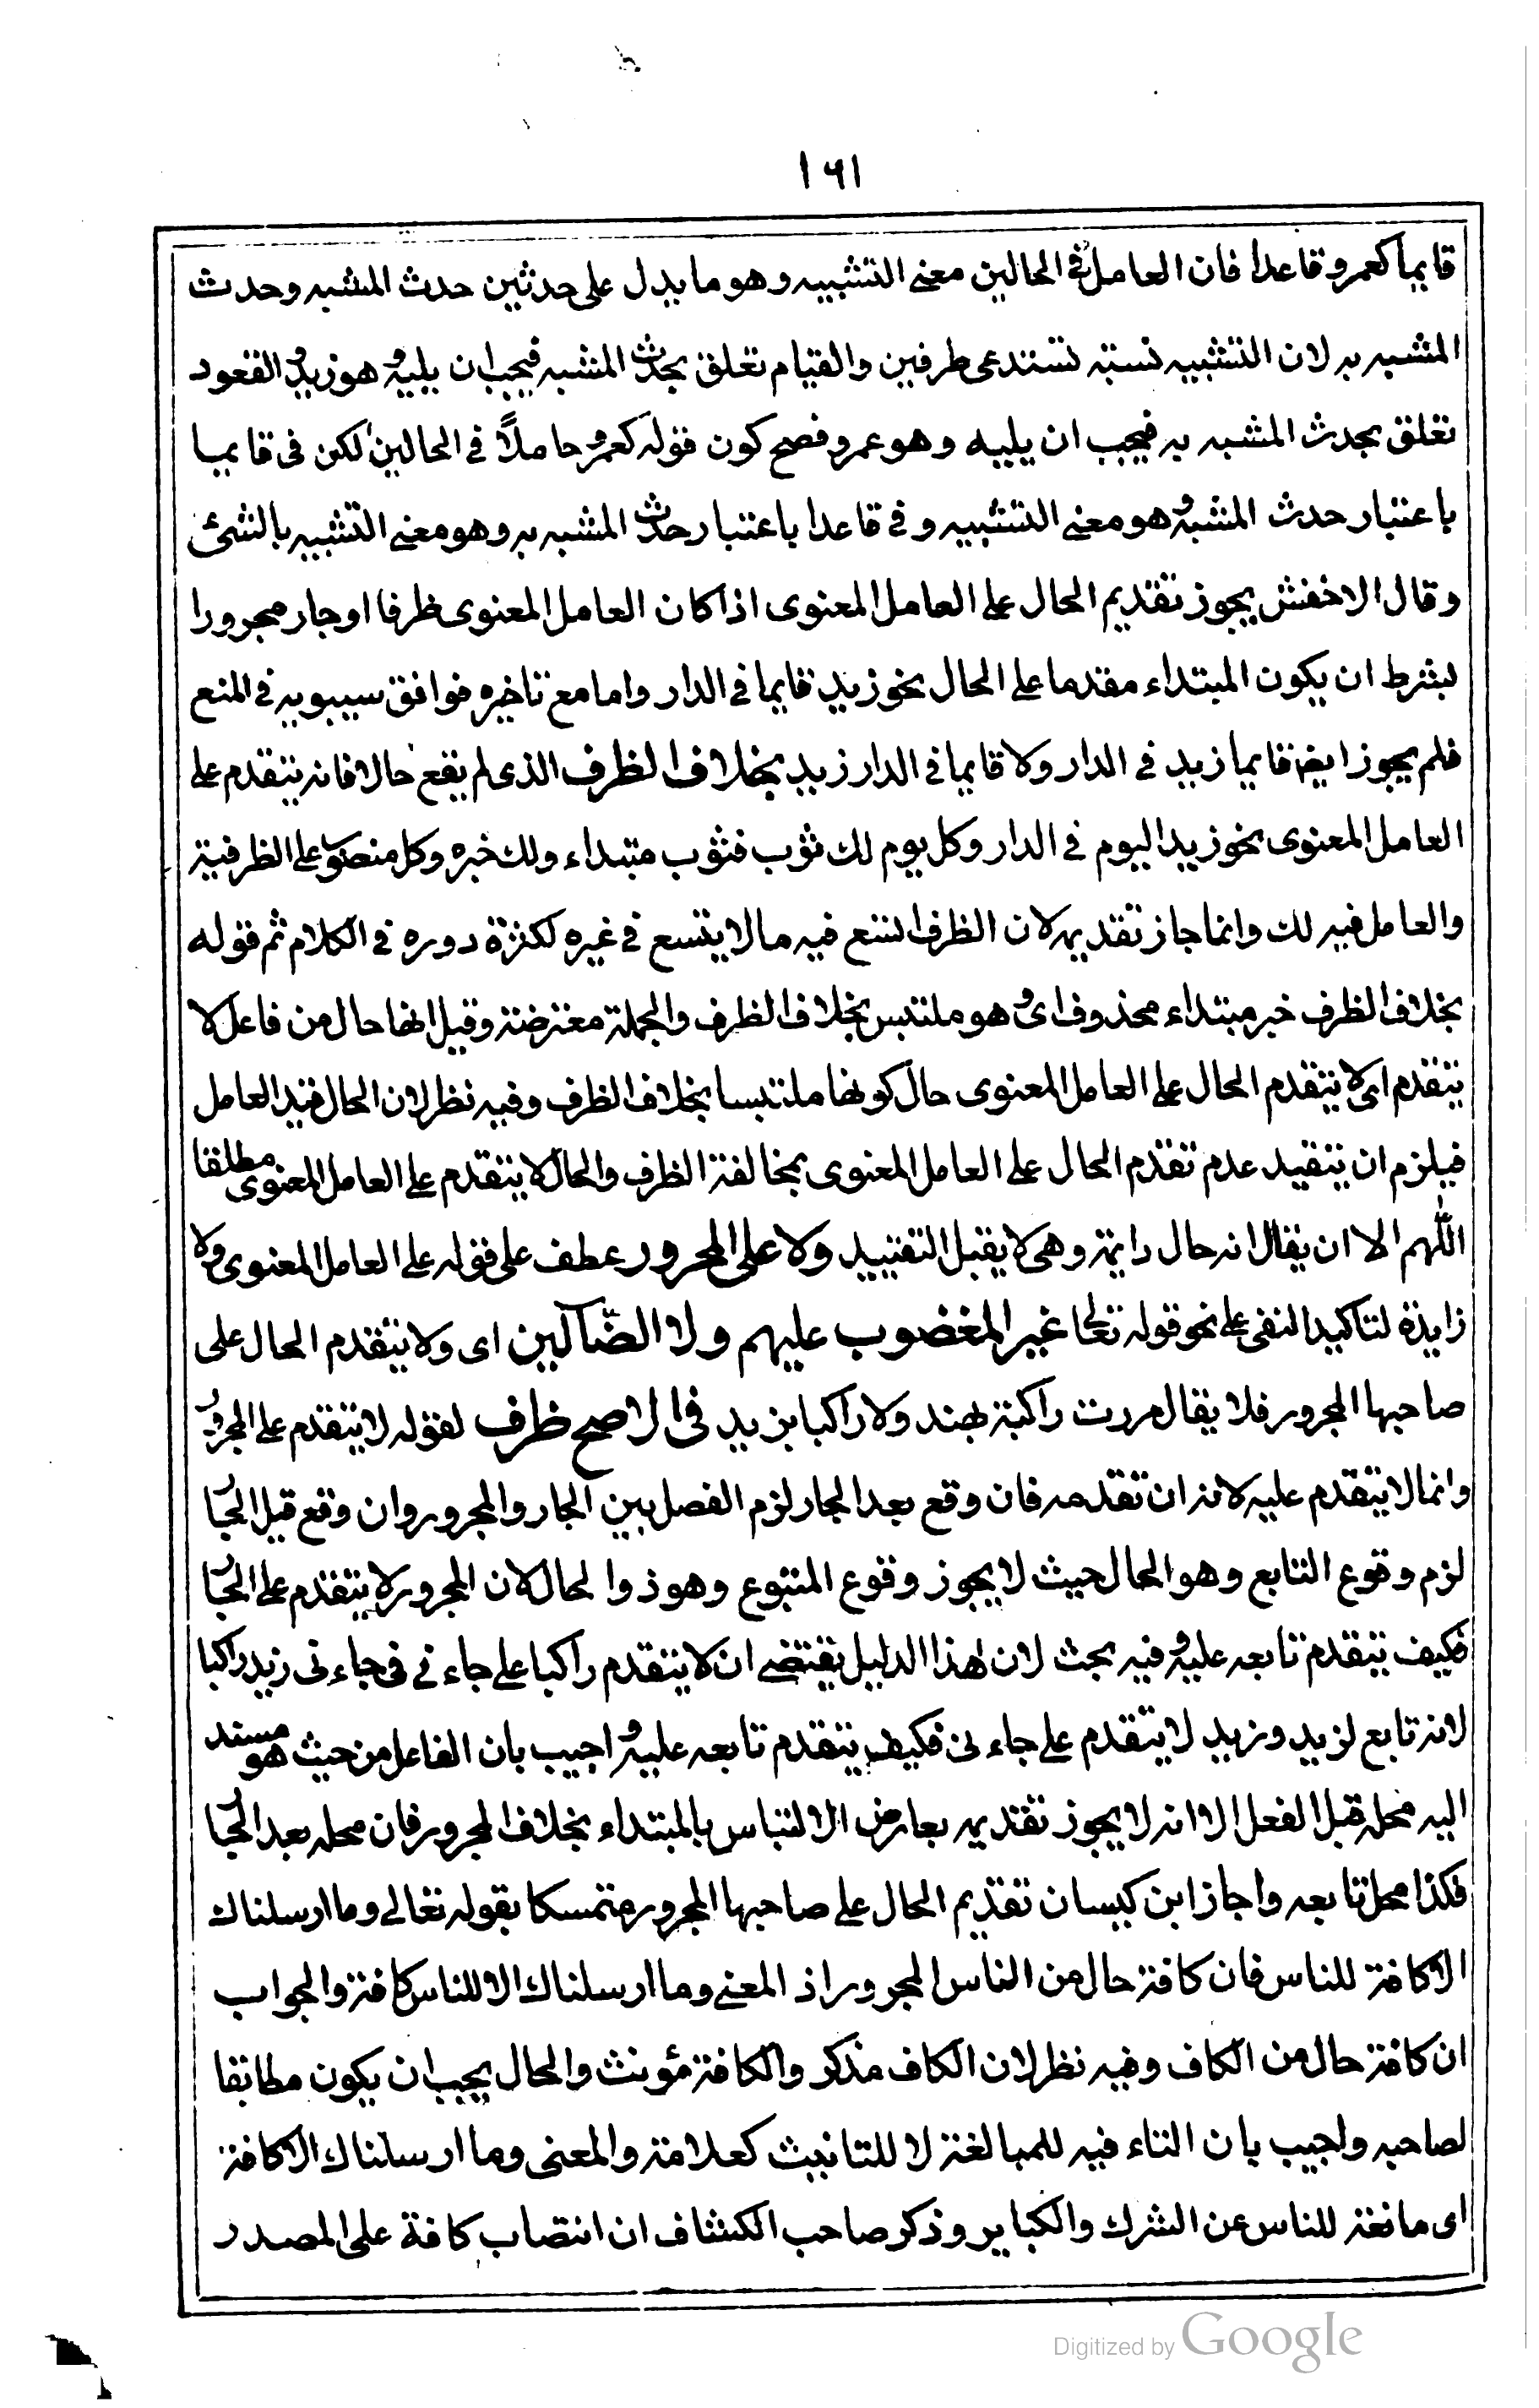 ١٦١
قايما كعمرو قاعدا فان العامل في الحالين معنى التشبيه وهو ما يدل على حدثين حدث المشبه وحدث
المشبه به لان التشبيه نسبة تستدعى طرفين والقيام تعلق بحدث المشبه فيجب ان يليه وهو زيد والقعود
تعلق بحدث المشبه به فيجب ان يليه وهو عمرو فصح كون قوله كعمرو حاملاً في الحالين لكن فى قايما
باعتبار حدث المشبه وهو معنى التشبيه وفى قاعدا باعتبار حدث المشبه به وهو معنى التشبيه بالشئ
وقال الاخفش يجوز تقديم الحال على العامل المعنوى اذا كان العامل المعنوى ظرفا او جار مجرورا
بشرط ان يكون المبتداء مقدما على الحال نحو زيد قايما في الدار واما مع تاخيره فوافق سيبويه في المنع
فلم يجوز ايضا قايما زيد في الدار ولا قايما في الدار زيد بخلاف الظرف الذى لم يقع حالا فانه يتقدم على
العامل المعنوى نحو زيد اليوم في الدار وكل يوم لك ثوب فثوب مبتداء ولك خبره وكل منصوب على الظرفية
والعامل فيه لك وانما جاز تقديمه لان الظرف اتسع فيه ما لا يتسع في غيره لكثرة دوره في الكلام ثم قوله
بخلاف الظرف خبر مبتداء محذوف اى وهو ملتبس بخلاف الظرف والجملة معترضة وقيل انها حال من فاعل لا
يتقدم اى لا يتقدم الحال على العامل المعنوى حال كونها ملتبسا بخلاف الظرف وفيه نظر لان الحال قيد العامل
فيلزم ان يتقيد عدم تقدم الحال على العامل المعنوى بمخالفة الظرف والحال لا يتقدم على العامل المعنوى مطلقا
اللهم الا ان يقال انه حال دايمة وهى لا يقبل التقييد ولا على المجرور عطف على قوله على العامل المعنوى ولا
زايدة لتاكيد النفى على نحو قوله تعالى غير المغضوب عليهم ولا الضّآلين اى ولا يتقدم الحال على
صاحبها المجرور فلا يقال مررت راكبة بهند ولا راكبا بزيد فى الاصح ظرف لقوله لا يتقدم على المجرور
وانما لا يتقدم عليه لانه ان تقدمه فان وقع بعد الجار لزم الفصل بين الجار والمجرور وان وقع قبل الجار
لزم وقوع التابع وهو الحال حيث لا يجوز وقوع المتبوع وهو ذو الحال لان المجرور لا يتقدم على الجار
فكيف يتقدم تابعه عليه وفيه بحث لان هذا الدليل يقتضى ان لا يتقدم راكبا على جاء نى فى جاء نى زيد راكبا
لانه تابع لزيد وزيد لا يتقدم على جاء نى فكيف يتقدم تابعه عليه واجيب بان الفاعل من حيث هو مسند
اليه محله قبل الفعل الا انه لا يجوز تقديمه بعارض الالتباس بالمبتداء بخلاف المجرور فان محله بعد الجار
فكذا محل تابعه واجاز ابن كيسان تقديم الحال على صاحبها المجرور متمسكا بقوله تعالى وما ارسلناك
الا كافة للناس فان كافة حال من الناس المجرور اذ المعنى وما ارسلناك الا للناس كافة والجواب
ان كافة حال من الكاف وفيه نظر لان الكاف مذكر والكافة مؤنث والحال يجب ان يكون مطابقا
لصاحبه واجيب بان التاء فيه للمبالغة لا للتانيث كعلامة والمعنى وما ارسلناك الا كافة
اى مانعة للناس عن الشرك والكباير وذكر صاحب الكشاف ان انتصاب كافة على المصدر
Digitized by Google